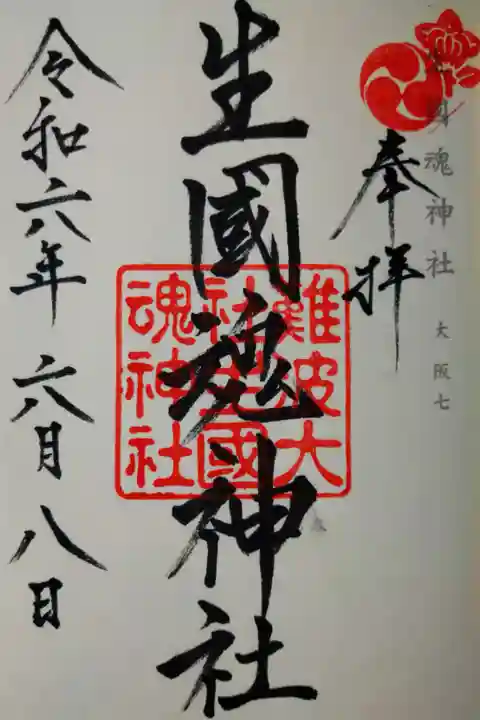 生國魂神社 大阪七
奉拝
生國魂神社
難波大
社生國
魂神社
令和六年 六月 八日